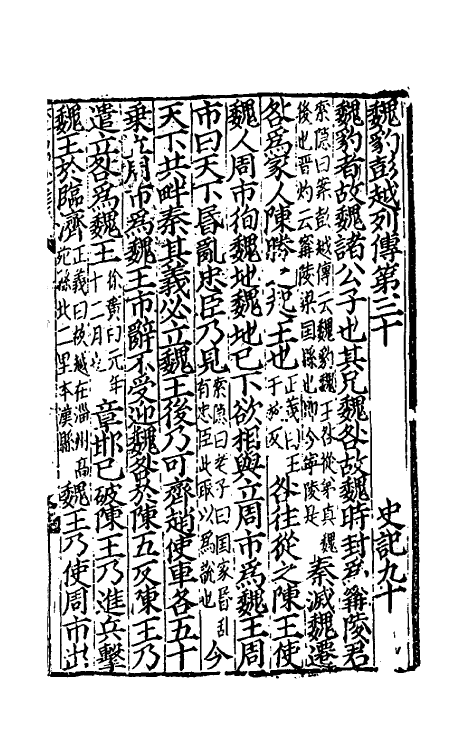 魏豹彭越列傳第三十 史記九十
魏豹者故魏諸公子也其兄魏咎故魏時封為甯陵君
索隱曰案彭越傳云魏豹魏王咎從弟真魏
後也晉灼云甯陵梁國縣也即今寧陵是 秦滅魏遷
咎為家人陳勝之起王也 正義曰王
于放反 咎往從之陳王使
魏人周市徇魏地魏地已下欲相與立周市為魏王周
市曰天下昏亂忠臣乃見 索隱曰老子曰國家昏亂
有忠臣此取以為說也 今
天下共畔秦其義必立魏王後乃可齊趙使車各五十
乘立周市為魏王市辭不受迎魏咎於陳五反陳王乃
遣立咎為魏王 徐廣曰元年
十二月也 章邯已破陳王乃進兵擊
魏王於臨濟 正義曰故越在淄州高
苑縣北二里本漢縣 魏王乃使周市出